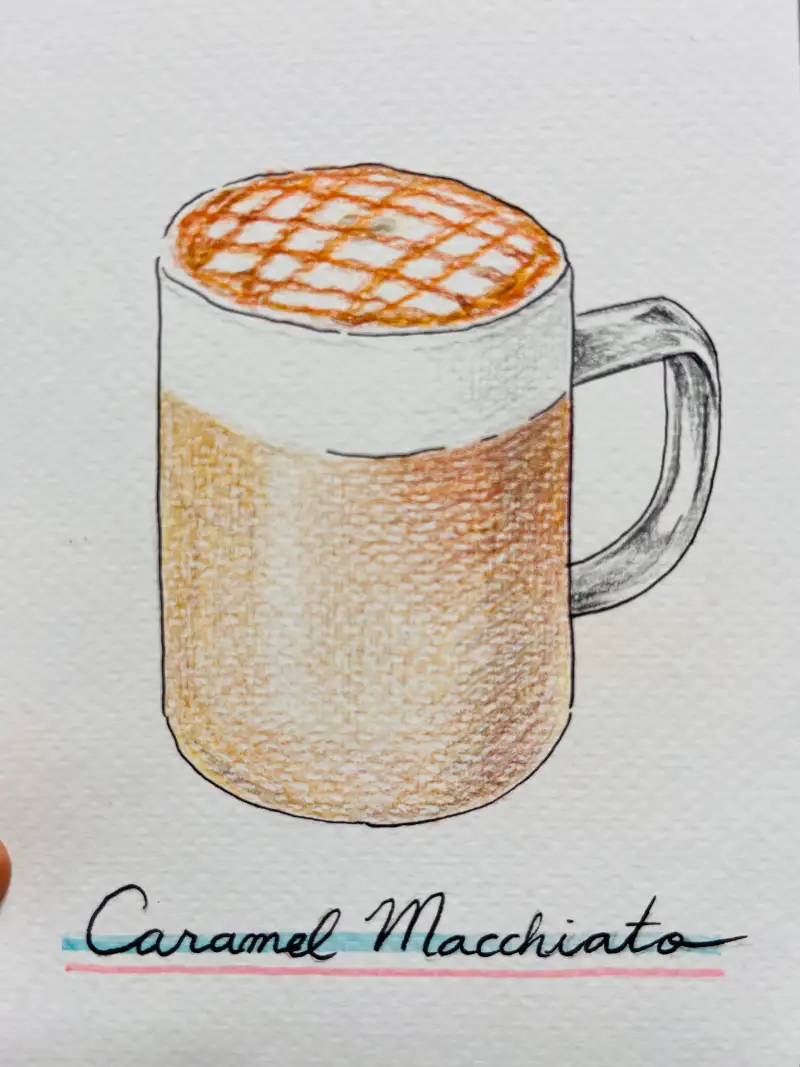 Caramel Macchiato